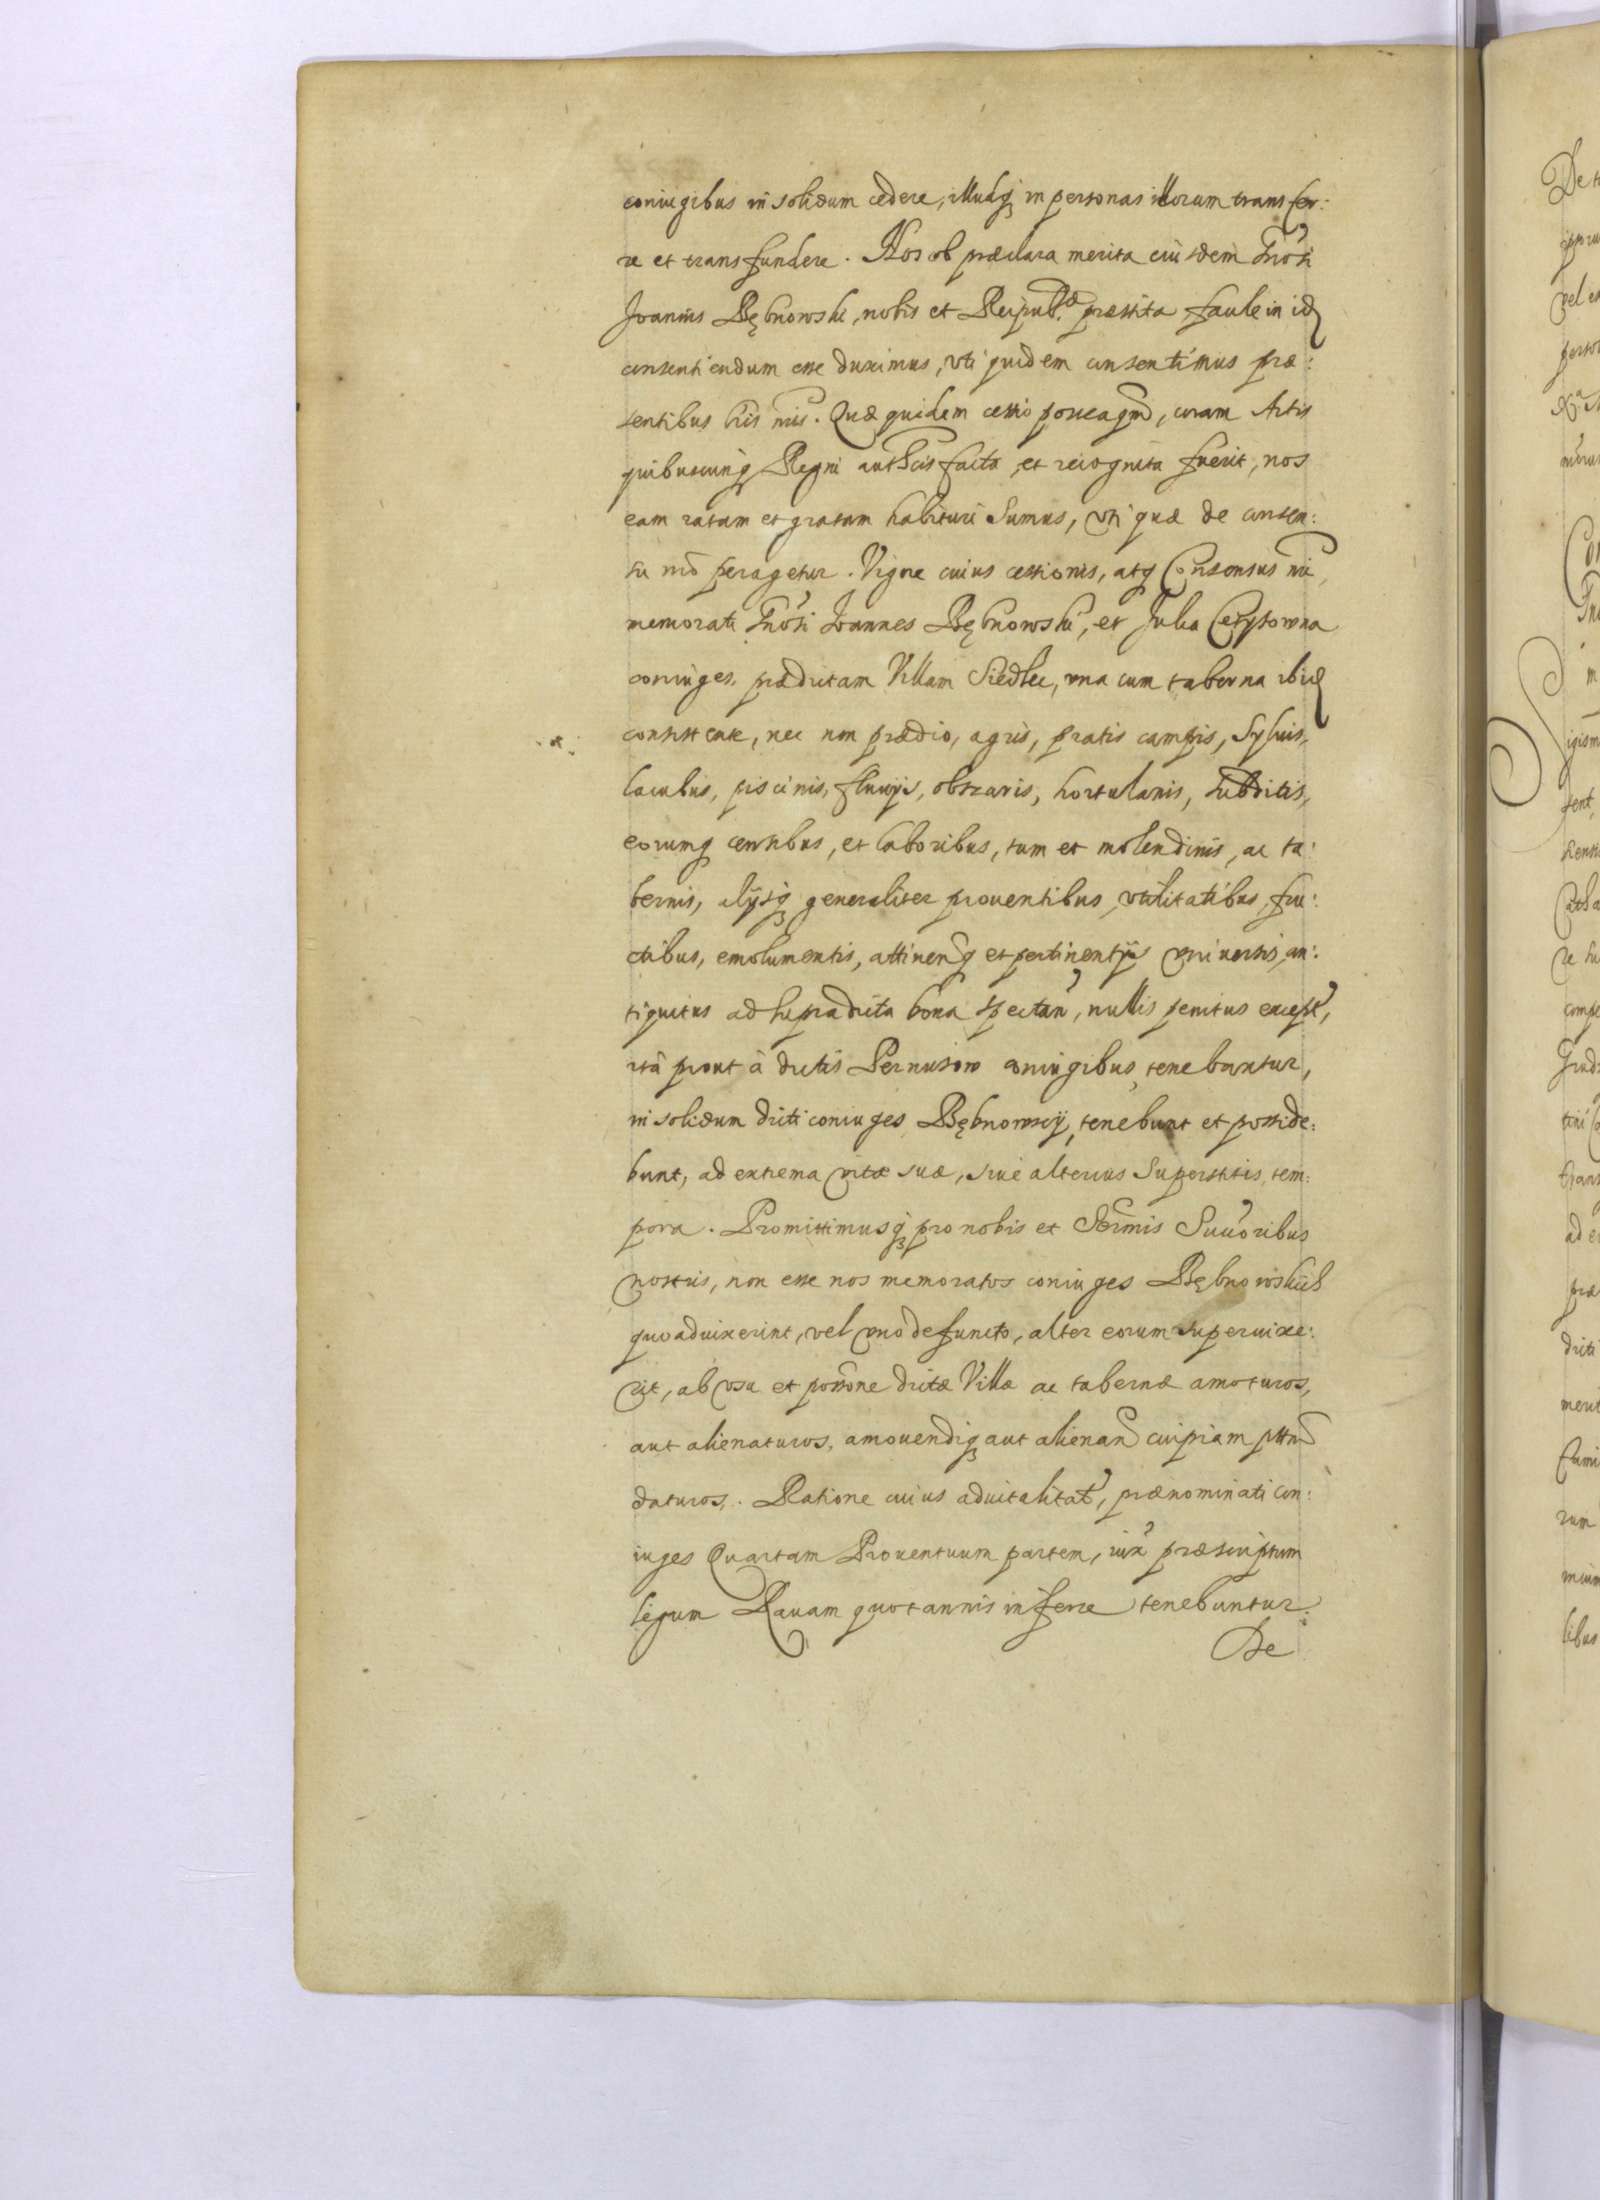 coniugibus in solidum cedere, illudq3 in personas illorum transfer:
re et transfundere. Nos ob præclara merita eiusdem Gnosi
Joannis Bębnowski, nobis et Reipub: præstita facile in id
consentiendum esse duximus, vti quidem consentimus præ:
sentibus his nris. Quæ quidem cessio postea qm, coram Actis
quibuscunq Regni authcis facta et recognita fuerit, nos
eam ratam et gratam habituri sumus, vti quæ de consen:
su nro peragetur. Vigore cuius cessionis, atq Consensus nri
memorati Gnosi Joannes Bębnowski, et Julia Cetysowna
coniuges, prædictam Villam Siedlec, vna cum taberna ibid
consistente, nec non prædio, agris, pratis campis, Syluis,
lacubus, piscinis, fluuijs, obstaris, hortulanis, subditis,
eorumq censibus, et laboribus, tum et molendinis, ac ta:
bernis, alijsq3 generaliter prouentibus, vtilitatibus, fru:
ctibus, emolumentis, attinenq et pertinentijs vniuersis an:
tiquitus ad supradicta bona spectan, nullis penitus except,
ità prout à dictis Pernusow coniugibus tenebantur,
in solidum dicti coniuges Bębnowscij, tenebunt et posside:
bunt, ad extrema vitæ suæ, siue alterius Superstitis, tem:
pora. Promittimusq3 pro nobis et Sermis Succoribus
nostris, non esse nos memoratos coniuges Bębnowskich
quoaduixerint, vel vno defuncto, alter eorum superuixe:
rit, ab vsu et possone dictæ Villæ ac tabernæ amoturos,
aut alienaturos, amouendiq3 aut alienand cuipiam pttm
daturos. Ratione cuius aduitalitat, prænominati con:
iuges Quartam Prouentuum partem, iux præscriptum
legum Rauam quotannis inferre tenebuntur.
De